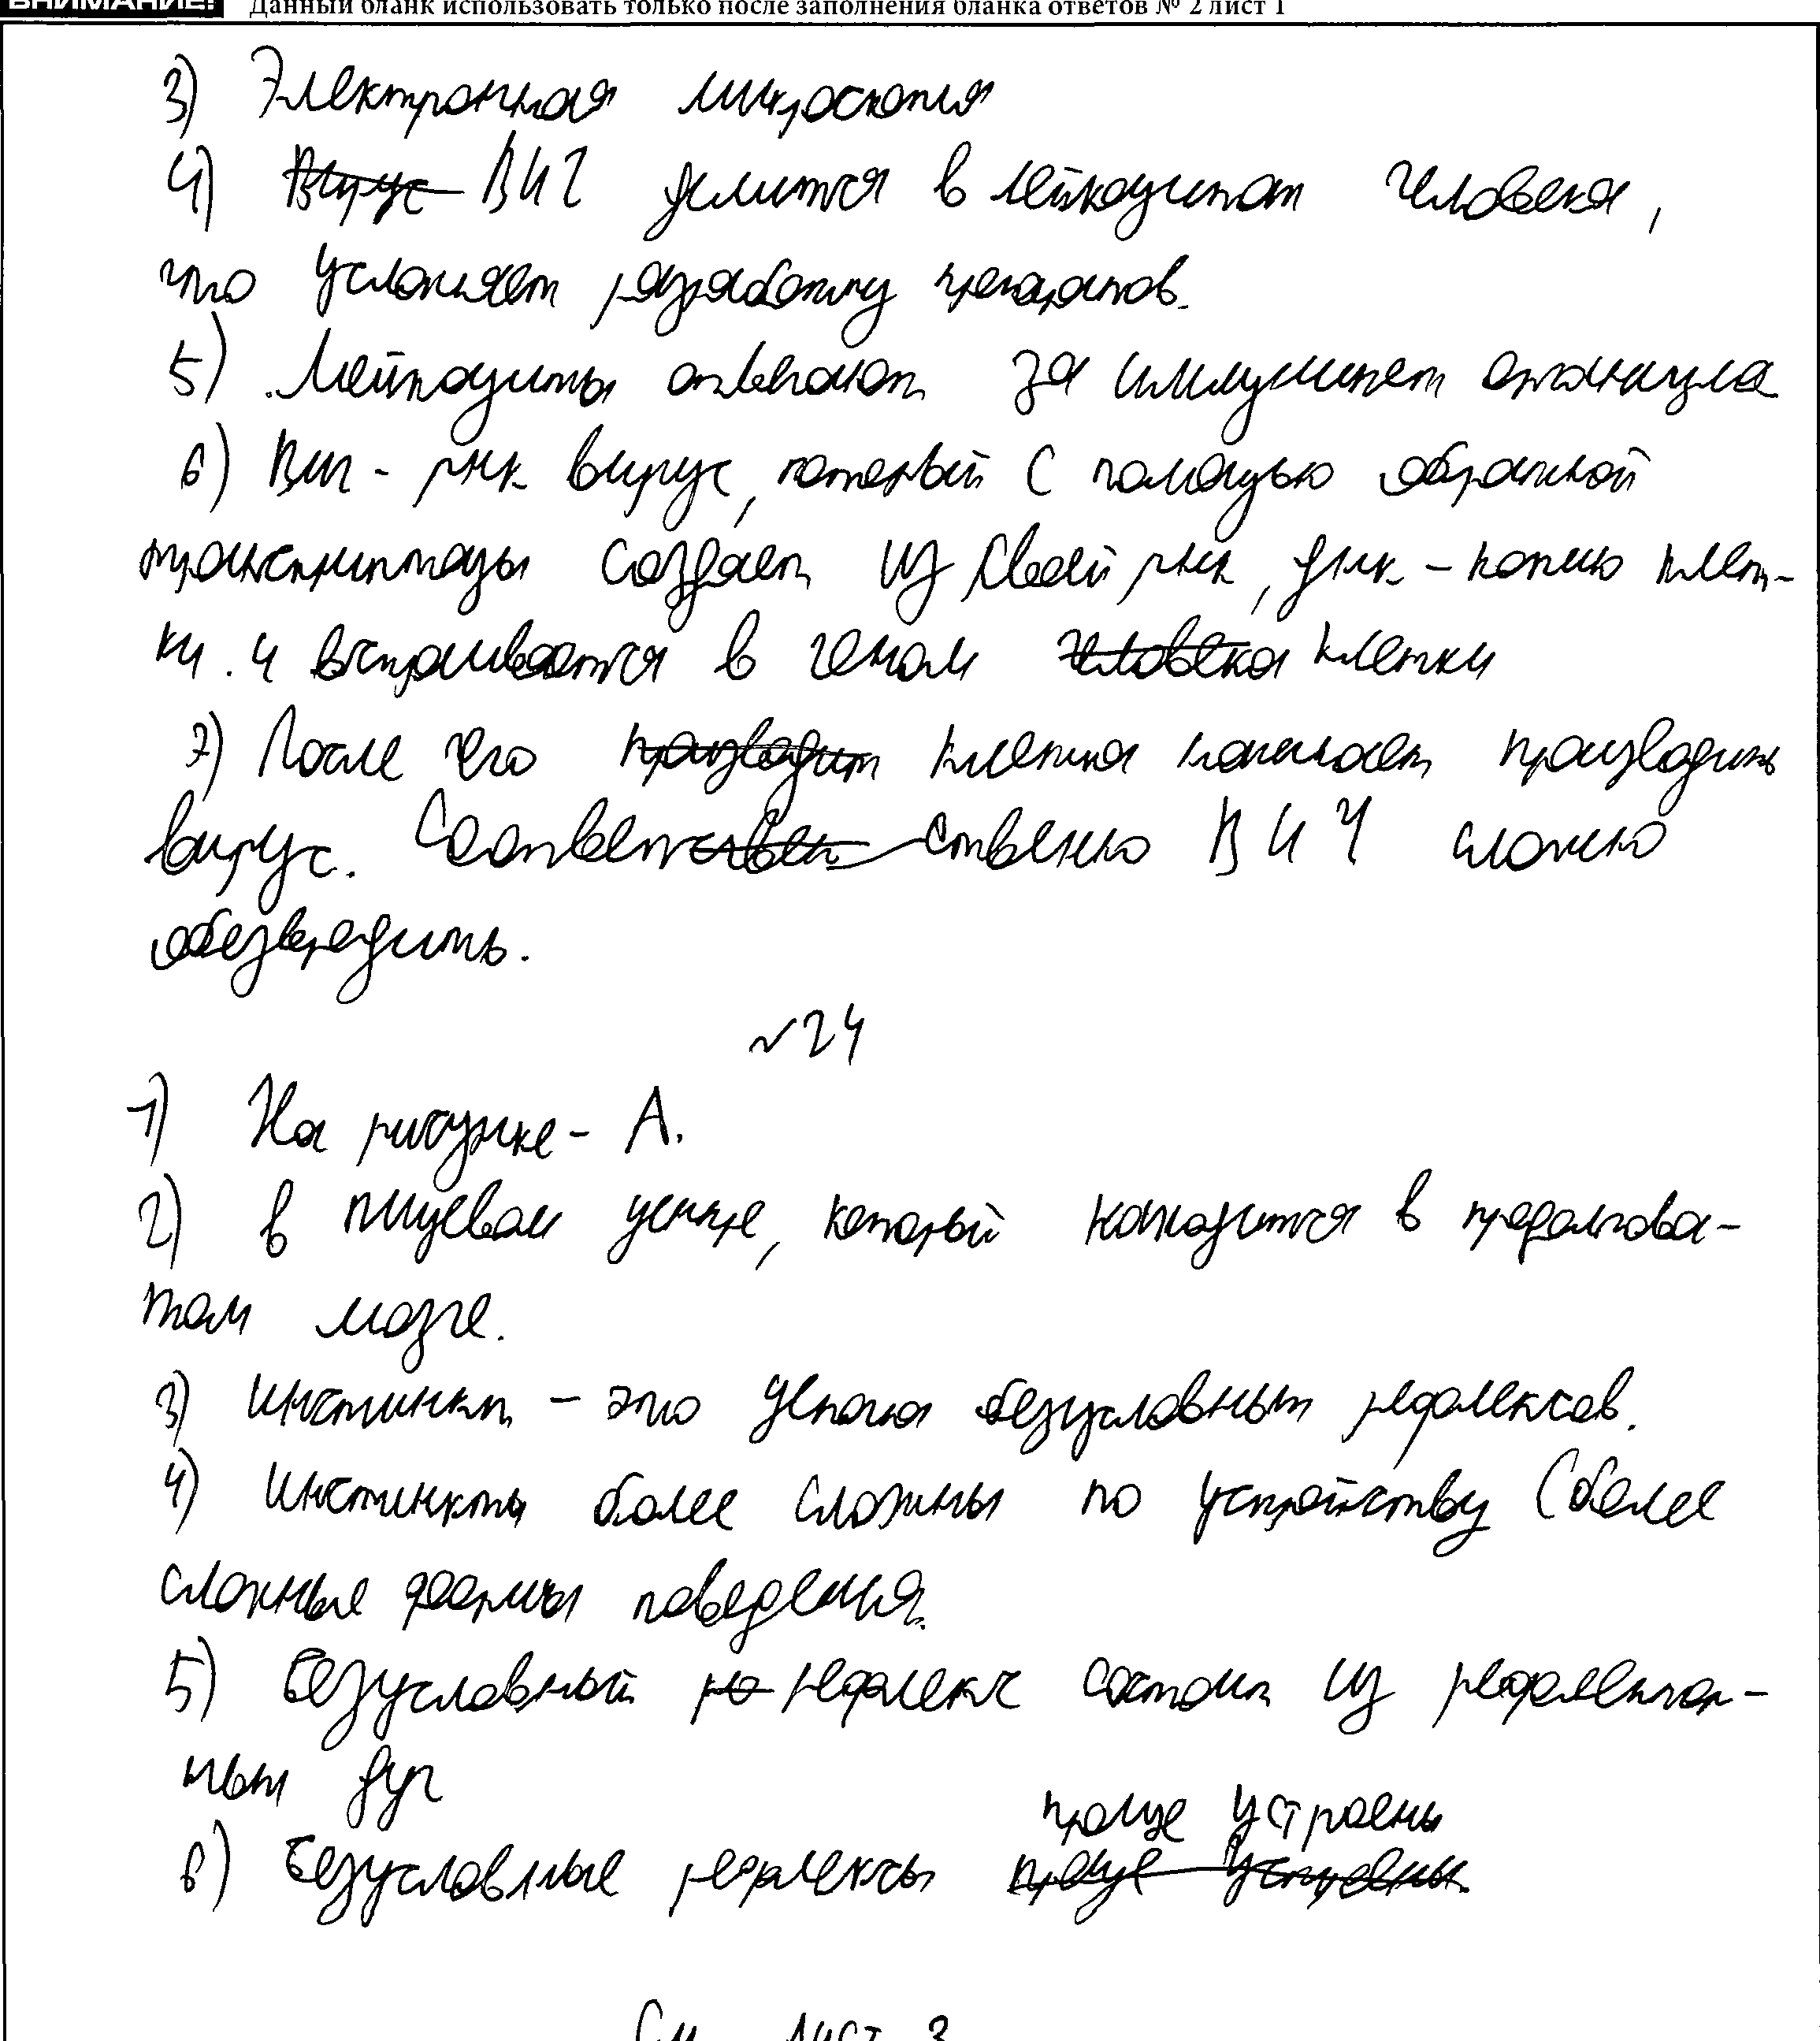 ВНИМАНИЕ! Данный бланк использовать только после заполнения бланка ответов № 2 лист 1
3) Электронная микроскопия
4) Вирус ВИЧ делится в лейкоцитах человека,
что усложняет разработку препаратов.
5) Лейкоциты отвечают за иммунитет организма
6) ВИЧ - рнк вирус, который с помощью обратной
транскриптазы создает из своей рнк, днк - копию клет-
ки. и встраивается в геном человека клетки
7) После чего производит клетка начинает производить
вирус. Соответствен ственно ВИЧ сложно
обезвредить.
№24
1) На рисунке - А.
2) в пищевом центре, который находится в продолгова-
том мозге.
3) инстинкт - это цепочка безусловных рефлексов.
4) Инстинкты более сложны по устройству (более
сложные формы поведения.
5) Безусловный ре рефлекс состоит из рефлектор-
ных дуг
проще устроены
6) Безусловные рефлексы проще устроены.
См. лист 3